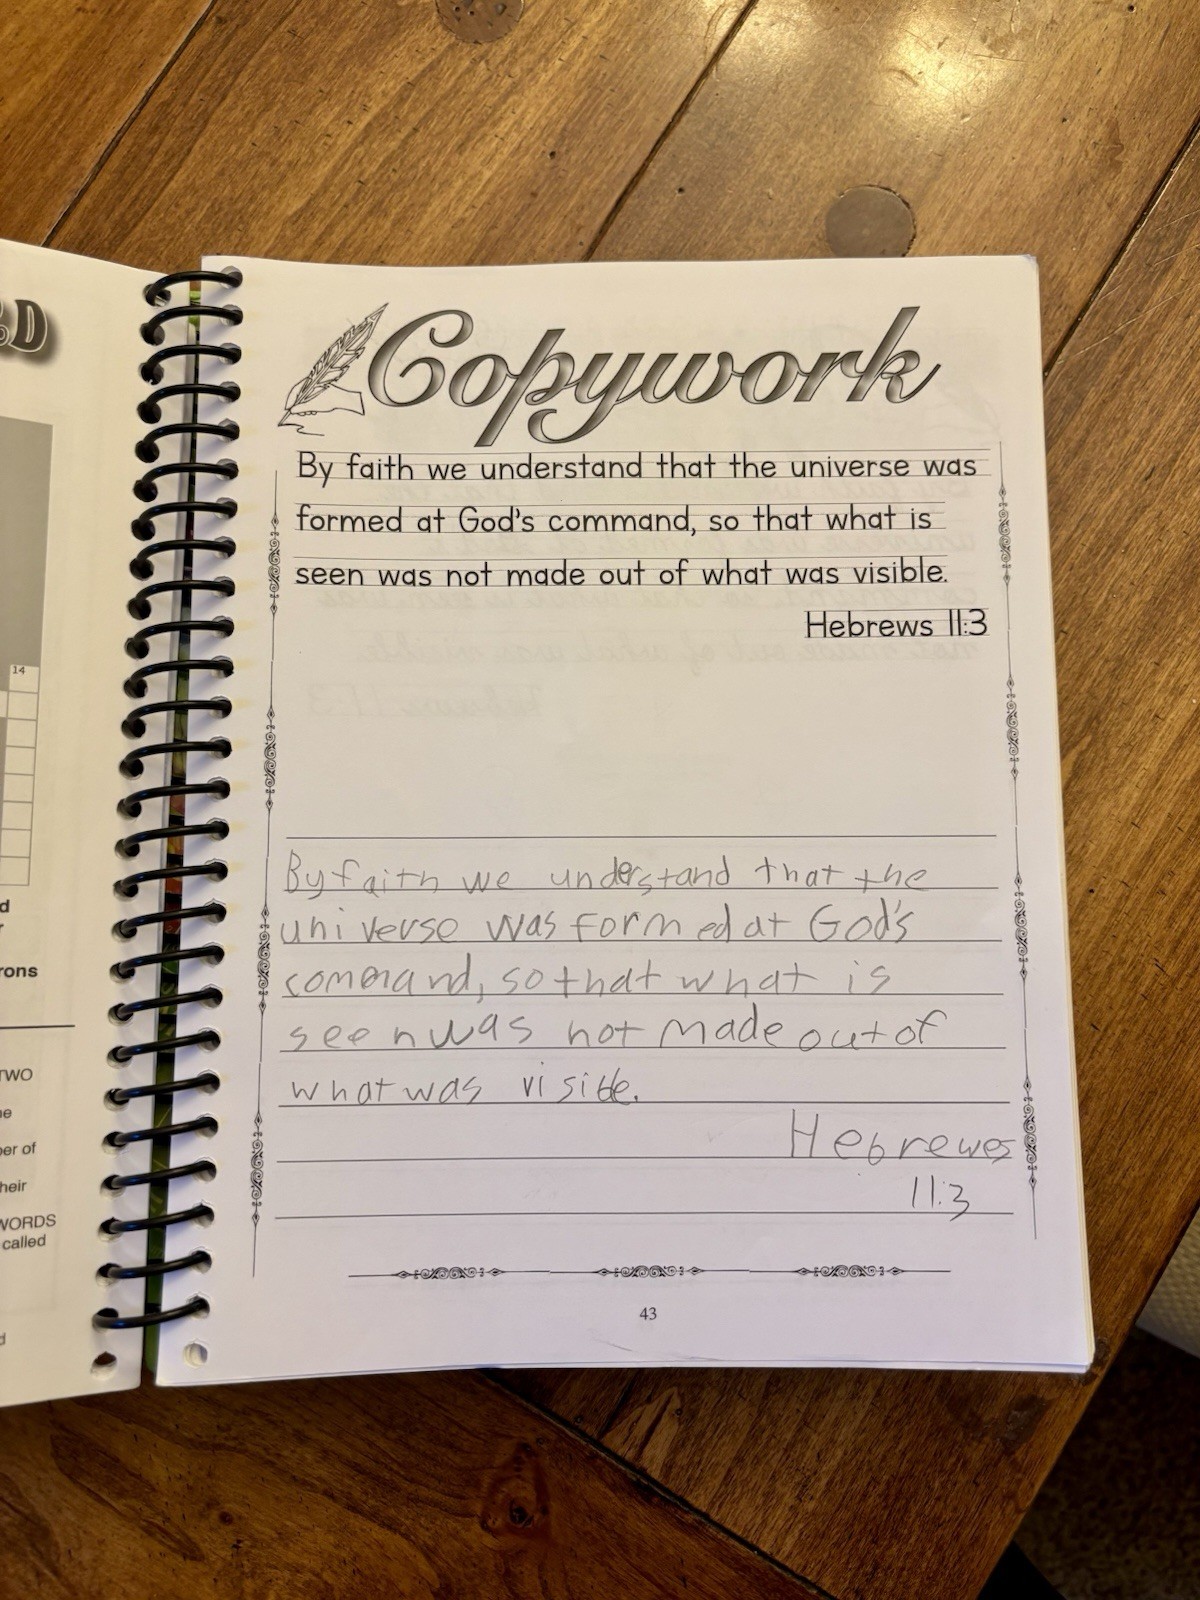 Copywork
By faith we understand that the universe was
formed at God's command, so that what is
seen was not made out of what was visible.
Hebrews 11:3
By faith we understand that the
universe was formed at God's
command, so that what is
seen was not made out of
what was visible.
Hebrewes
11:3
43
14
rons
TWO
per of
their
WORDS
called